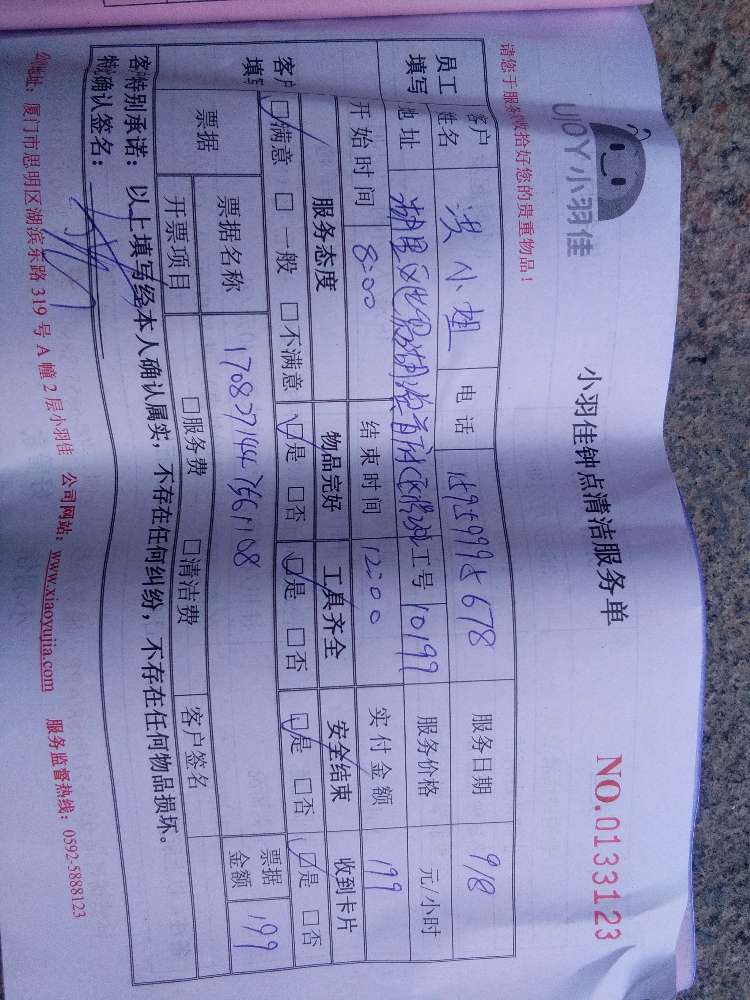 UJOY小羽佳
小羽佳钟点清洁服务单
NO.0133123
请您于服务收拾好您的贵重物品！
员工填写 客户姓名 洪小姐 电话 15959995678 服务日期 9/8
地址 工号 10199 服务价格 元/小时
开始时间 8:00 结束时间 12:00 实付金额 199
客户填写 服务态度 物品完好 工具齐全 安全结束 收到卡片
☑满意 □一般 □不满意 ☑是 □否 ☑是 □否 ☑是 □否 ☑是 □否
票据 票据名称 票据金额 199
开票项目 □服务费 □清洁费 客户签名
客特别承诺：以上填写经本人确认属实，不存在任何纠纷，不存在任何物品损坏。
确认签名：
公地址：厦门市思明区湖滨东路319号A幢2层小羽佳 公司网站：www.xiaoyujia.com 服务监督热线：0592-5888123